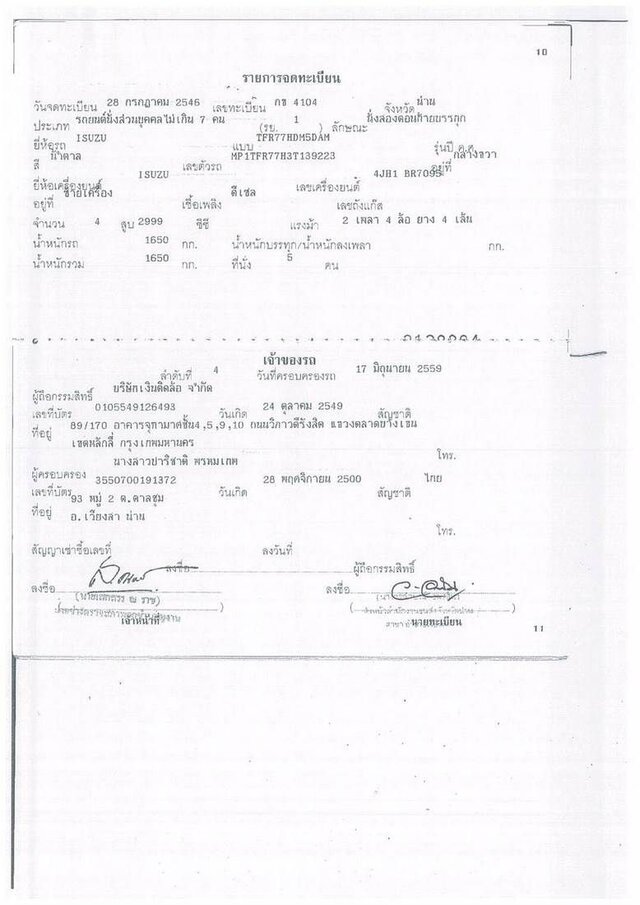 10
รายการจดทะเบียน
วันจดทะเบียน 28 กรกฎาคม 2546 เลขทะเบียน กข 4104 จังหวัด น่าน
ประเภท รถยนต์นั่งส่วนบุคคลไม่เกิน 7 คน (รย. 1 ) ลักษณะ นั่งสองตอนท้ายบรรทุก
ยี่ห้อรถ ISUZU แบบ TFR77HDM5DAM รุ่นปี ค.ศ.
สี น้ำตาล เลขตัวรถ MP1TFR77H3T139223 อยู่ที่ กลางขวา
ยี่ห้อเครื่องยนต์ ISUZU เลขเครื่องยนต์ 4JH1 BR7095
อยู่ที่ ซ้ายเครื่อง เชื้อเพลิง ดีเซล เลขถังแก๊ส
จำนวน 4 สูบ 2999 ซีซี แรงม้า 2 เพลา 4 ล้อ ยาง 4 เส้น
น้ำหนักรถ 1650 กก. น้ำหนักบรรทุก/น้ำหนักลงเพลา กก.
น้ำหนักรวม 1650 กก. ที่นั่ง 5 คน
เจ้าของรถ
ลำดับที่ 4 วันที่ครอบครองรถ 17 มิถุนายน 2559
ผู้ถือกรรมสิทธิ์ บริษัทเงินติดล้อ จำกัด
เลขที่บัตร 0105549126493 วันเกิด 24 ตุลาคม 2549 สัญชาติ
ที่อยู่ 89/170 อาคารจุฑามาศชั้น4,5,9,10 ถนนวิภาวดีรังสิต แขวงตลาดบางเขน
เขตหลักสี่ กรุงเทพมหานคร
โทร.
ผู้ครอบครอง นางสาวปาริชาติ พรหมเทศ
เลขที่บัตร 3550700191372 วันเกิด 28 พฤศจิกายน 2500 สัญชาติ ไทย
ที่อยู่ 93 หมู่ 2 ต.ตาลชุม
อ.เวียงสา น่าน
โทร.
สัญญาเช่าซื้อเลขที่ ลงวันที่
ลงชื่อ ผู้ถือกรรมสิทธิ์
ลงชื่อ ลงชื่อ
เจ้าหน้าที่ นายทะเบียน
11